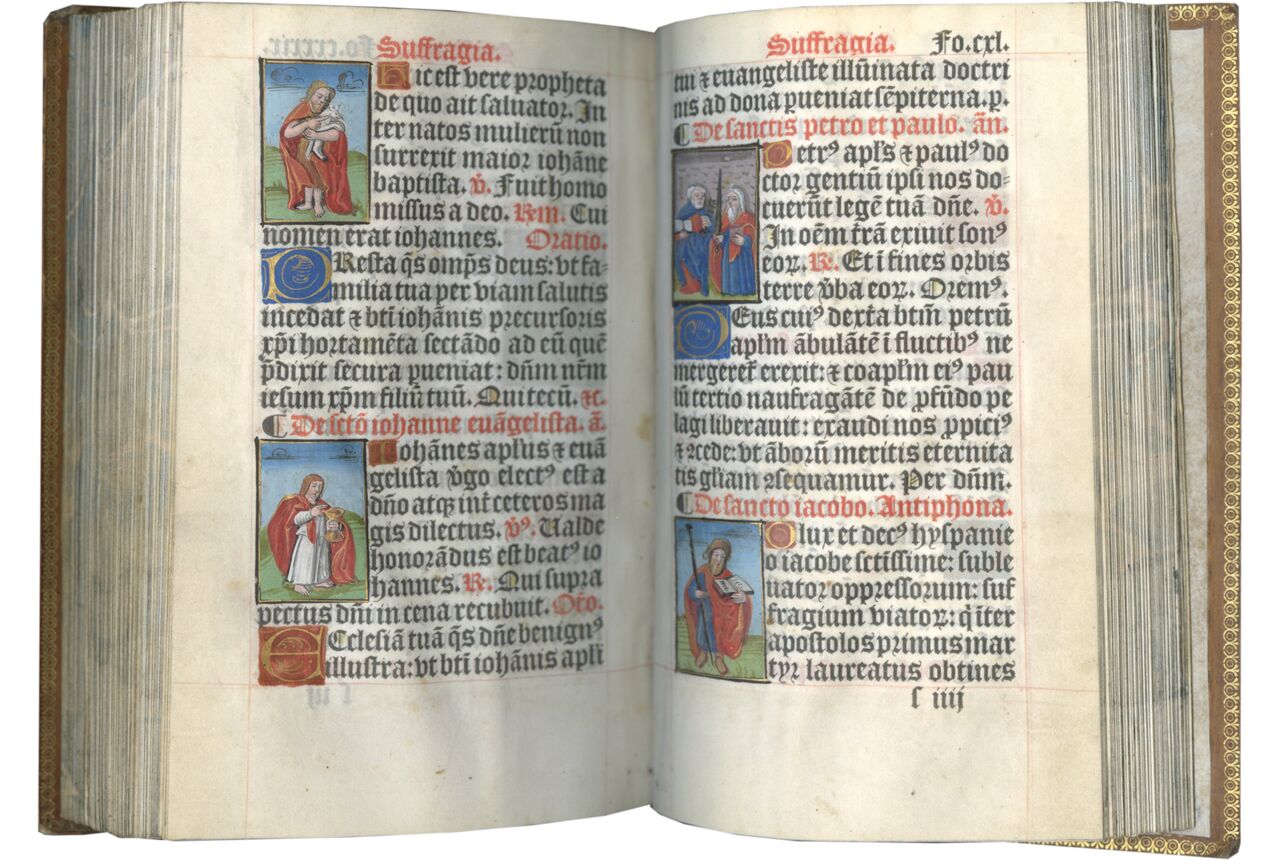 Suffragia.
Hic est vere propheta
de quo ait saluatoꝛ. In
ter natos mulierū non
surrexit maior iohāne
baptista. ℣. Fuit homo
missus a deo. Rem. Cui
nomen erat iohannes. Oratio.
PResta q̄s omp̄s deus: vt fa-
milia tua per viam salutis
incedat ⁊ bt̄i iohānis precursoris
xp̄i hortamēta sectādo ad eū quē
p̄dixit secura ꝑueniat: dn̄m nr̄m
iesum xp̄m filiū tuū. Qui tecū. ⁊c.
¶ De sctō iohanne euāgelista. ā.
Iohānes apl̄us ⁊ euā
gelista v̄go electꝰ est a
dn̄o atqꝫ int̄ ceteros ma
gis dilectus. ℣ꝰ. Ualde
honorādus est beatꝰ io
hannes. ℟. Qui supra
pectus dn̄i in cena recubuit. Or̄o.
ECclesiā tuā q̄s dn̄e benignꝰ
illustra: vt bt̄i iohānis apl̄i
Suffragia. Fo.cxl.
tui ⁊ euangeliste illūinata doctri
nis ad dona ꝑueniat sēpiterna. p.
¶ De sanctis petro et paulo. ān.
Petrꝰ apl̄s ⁊ paulꝰ do
ctor gentiū ipsi nos do-
cuerūt legē tuā dn̄e. ℣.
In oēm t̄rā exiuit sonꝰ
eoꝝ. ℟. Et ī fines orbis
terre v̄ba eoꝝ. Oremꝰ.
DEus cuiꝰ dext̄a btm̄ petrū
apl̄m ābulātē ī fluctibꝰ ne
mergeret̄ erexit: ⁊ coapl̄m eiꝰ pau
lū tertio naufragātē de ꝓfūdo pe
lagi liberauit: exaudi nos ꝓpiciꝰ
⁊ ꝯcede: vt āboꝝū meritis eternita
tis gl̄iam ꝯsequamur. Per dn̄m.
¶ De sancto iacobo. Antiphona.
O lux et decꝰ hyspanie
o iacobe sctissime: suble
uatoꝛ oppressorum: suf
fragium viatoꝝ: q̇ īter
apostolos primus mar
tyꝛ laureatus obtines
s iiij